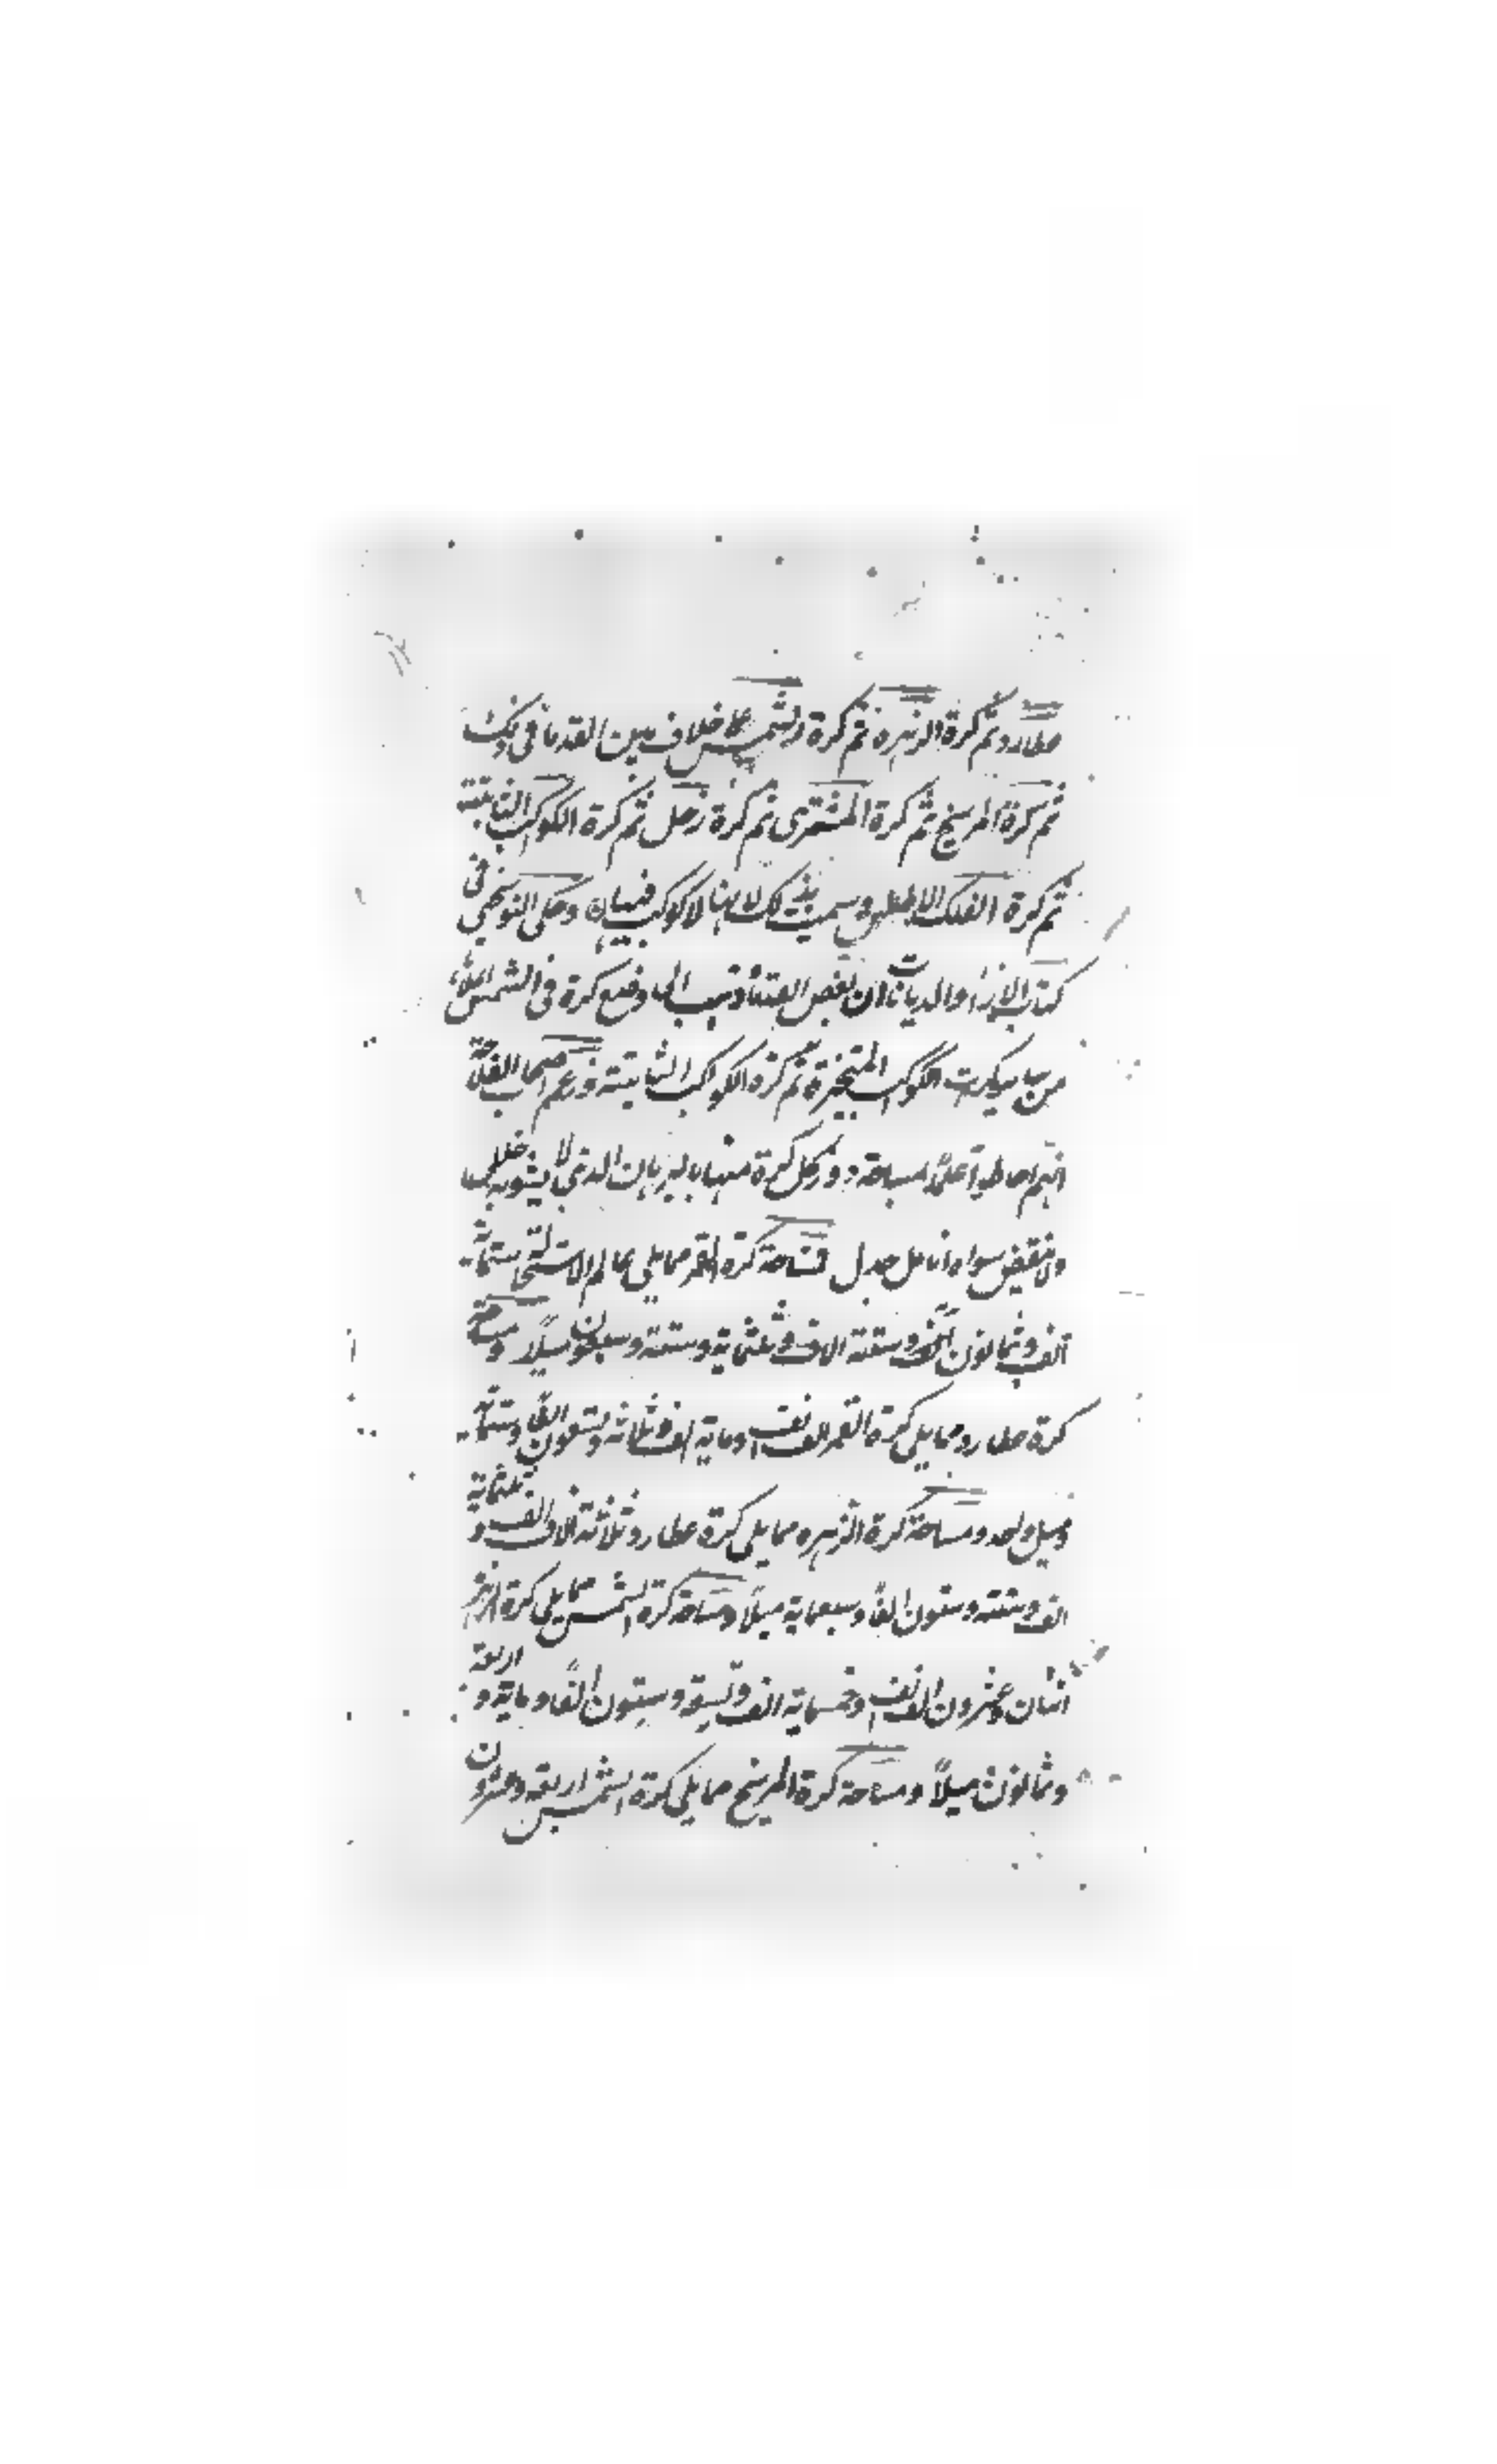 عطارد وثم كرة الزهره ثم كرة الشمس على خلاف بين القدما في ذلك
ثم كرة المريخ ثم كرة المشترى ثم كرة زحل ثم كرة الكواكب الثابتة
ثم كرة الفلك الاطلس وسميت بذلك لانها لا كوكب فيها وحكى النوبختى فى
كتاب الاراء والديانات ان بعض القدماء ذهب الى وضع كرة فى الشمس
من سايركرت الكواكب المتحيرة ثم كرة الكواكب الثابتة وزعم اصحاب
انهم احاطوا علمًا مساحة دور كل كرة منها بالبرهان الذى لا يشوبه خلل
ولا ينقض سواه انامل جدل فمساحة كرة القمر ممايلى عالم الاستحالة ستماية
الف وثمانون الف وستة الاف وثلثماية وستة وسبعون ميلاً ومساحة
كرة عطارد ممايلي كرة القمر الف الف وماية الف وثلاثة وتسعون الفًا وستماية
وميل واحد ومساحة كرة الزهره ممايلى كرة عطارد ثلاثة الاف الف وثلثماية
الف وستة وستون الفًا وسبعماية ميلاً ومساحة كرة الشمس ممايلى كرة الزهرة
اثنان وعشرون الف الف وخمسماية الف وتسعة وستون الفًا وماية واربعة
وثمانون ميلاً ومساحة كرة المريخ ممايلى كرة الشمس اربعة وعشرون